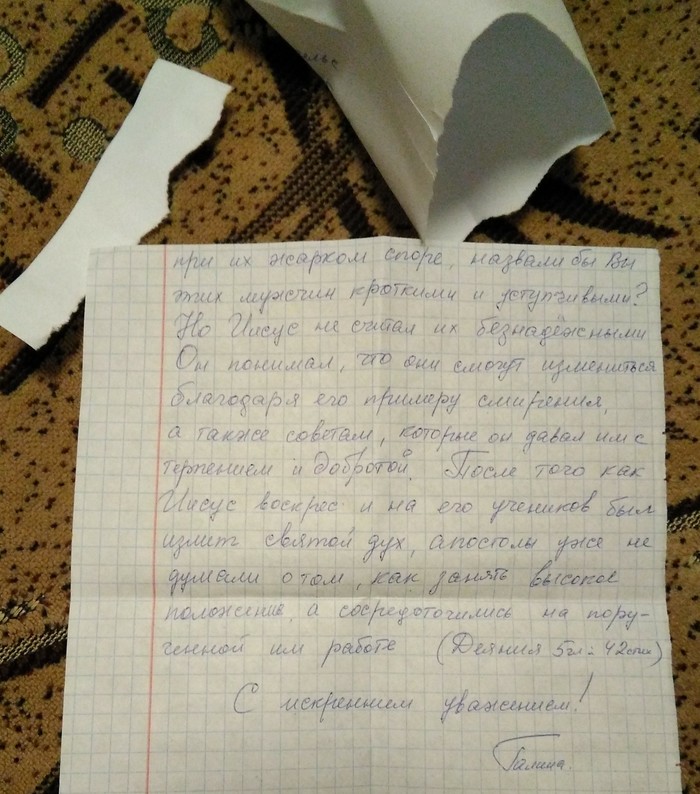 при их жарком споре, назвали бы Вы
этих мужчин кроткими и уступчивыми?
Но Иисус не считал их безнадёжными
Он понимал, что они смогут измениться
благодаря его примеру смирения,
а также советам, которые он давал им с
терпением и добротой. После того как
Иисус воскрес и на его учеников был
излит святой дух, апостолы уже не
думали о том, как занять высокое
положение, а сосредоточились на пору-
ченной им работе (Деяния 5гл: 42стих)
С искреннием уважением!
Галина.